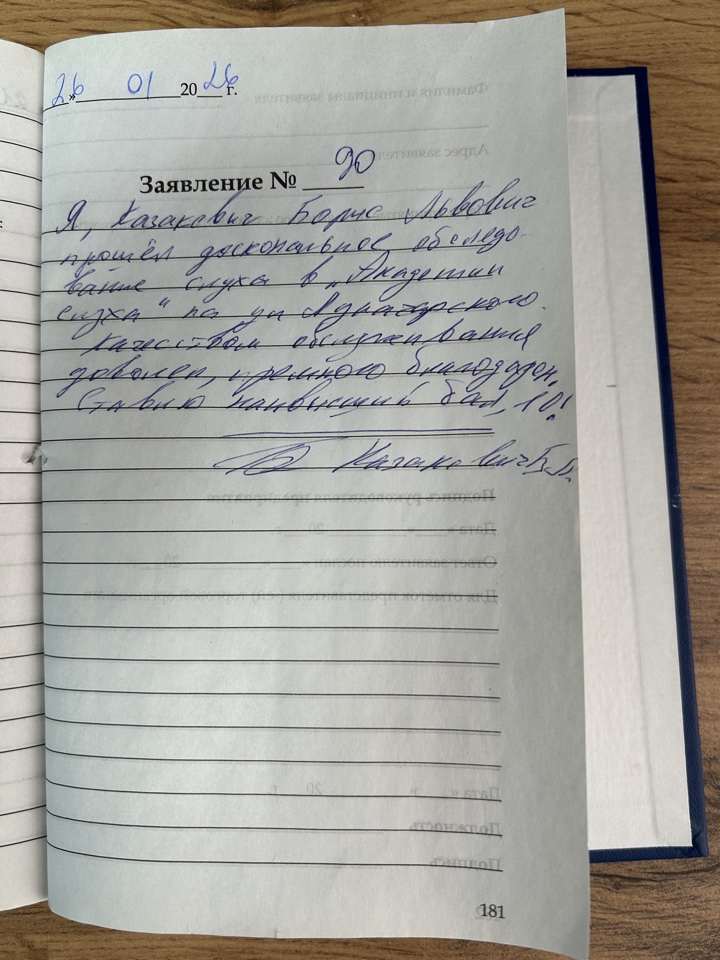 26 » 01 20 26 г.
Заявление № 90
Я, Казакевич Борис Львович
прошёл доскональное обследо-
вание слуха в „Академии
слуха“ на ул Луначарского.
Качеством обслуживания
доволен, премного благодарен.
Ставлю наивысший бал, 10!
Казакевич Б.Л.
181